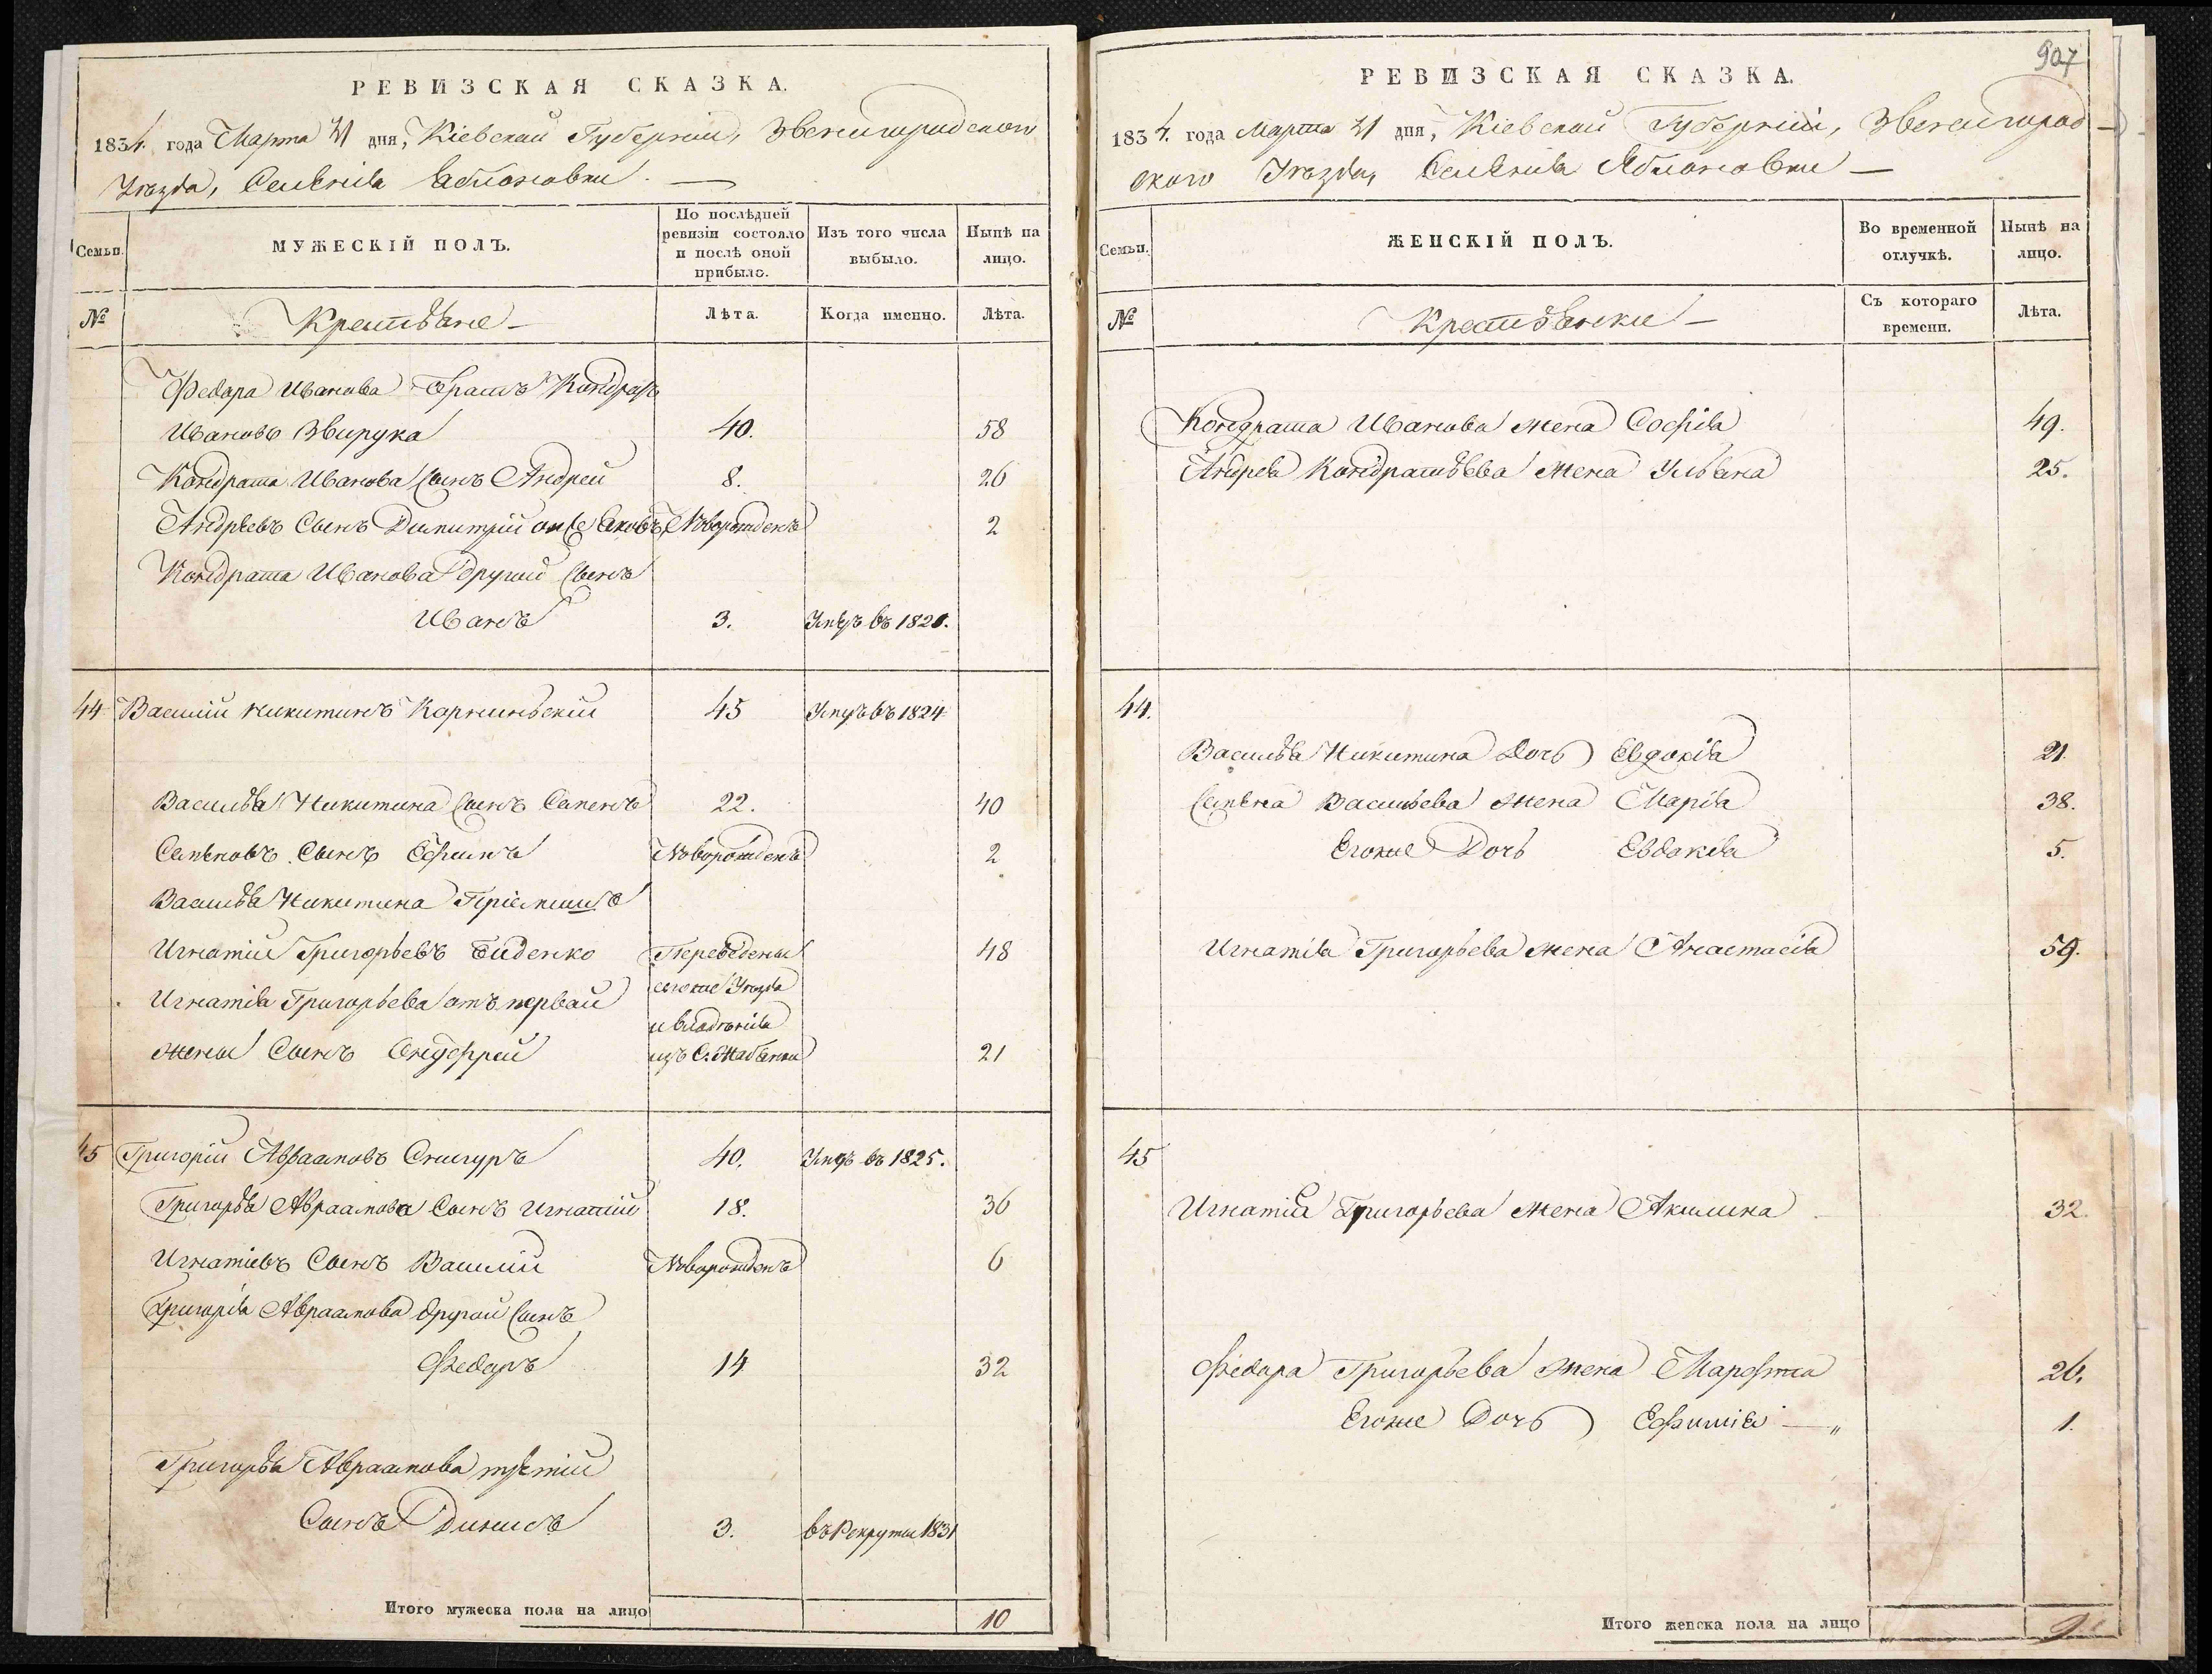 РЕВИЗСКАЯ СКАЗКА.
1834. года Марта 21 дня, Кіевской Губерніи, Звенигородского
Уѣзда, Селенія Яблоновки. —
Семьи.
МУЖЕСКІЙ ПОЛЪ.
По послѣдней
ревизіи состояло
и послѣ оной
прибыло.
Изъ того числа
выбыло.
Нынѣ на
лицо.
№
Крестьяне —
Лѣта.
Когда именно.
Лѣта.
Федора Иванова братъ Кондратъ
Ивановъ Звирука 40. 58
Кондрата Иванова Сынъ Андрей 8. 26
Андреевъ Сынъ Димитрій онже Яковъ Новорожденъ 2
Кондрата Иванова другой Сынъ
Иванъ 3. Умеръ въ 1821.
44 Василий Никитинъ Корниньскій 45 Умеръ въ 1824
Василья Никитина Сынъ Семенъ 22. 40
Семеновъ Сынъ Ефимъ Новорожденъ 2
Василья Никитина Пріемышъ
Игнатій Григорьевъ Биденко Переведены 48
Игнатія Григорьева отъ первой сегоже Уѣзда
и владѣнія
жены Сынъ Онуфрей изъ С. 21
45 Григорій Авраамовъ Снигуръ 40. Умеръ въ 1825.
Григорья Авраамова Сынъ Игнатий 18. 36
Игнатіевъ Сынъ Василій Новорожденъ 6
Григорія Авраамова другой Сынъ
Федоръ 14 32
Григорья Авраамова третій
Сынъ Динисъ 3. въ Рекруты 1831
Итого мужеска пола на лицо 10
907
РЕВИЗСКАЯ СКАЗКА.
1834. года Марта 21 дня, Кіевской Губерніи, Звенигород-
ского Уѣзда, Селенія Яблоновки —
Семьи.
ЖЕНСКІЙ ПОЛЪ.
Во временной
отлучкѣ.
Нынѣ на
лицо.
№
Крестьянки —
Съ котораго
времени.
Лѣта.
Кондрата Иванова жена Софія 49.
Андрея Кондратьева жена Ульяна 25.
44.
Василья Никитина Дочь Евдокія 21.
Семена Васильева жена Марія 38.
Егоже Дочь Евдокія 5.
Игнатія Григорьева жена Анастасія 59.
45
Игнатія Григорьева жена Акилина 32.
Федора Григорьева жена Марфта 26.
Егоже Дочь Ефимія — „ 1.
Итого женска пола на лицо 9